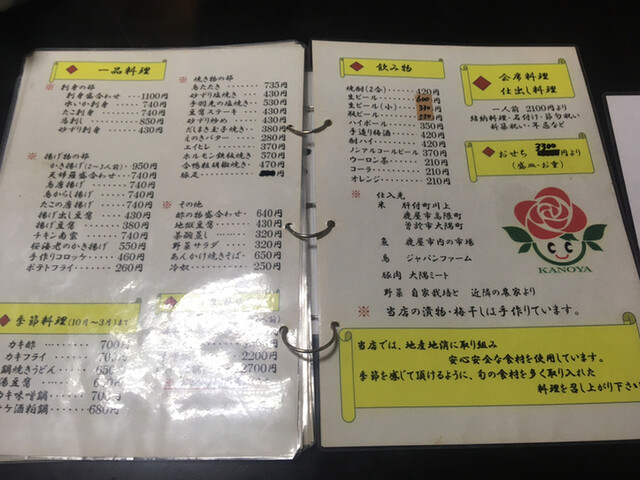 一品料理
※ 刺身の部
刺身盛合わせ‥1100円
水いか刺身‥‥740円
たこ刺身‥‥‥740円
馬刺し‥‥‥‥850円
砂ずり刺身‥‥430円
※ 揚げ物の部
かき揚げ(2〜3人前)‥950円
天婦羅盛合わせ‥740円
鳥唐揚げ‥‥‥740円
鳥からし揚げ‥740円
たこの唐揚げ‥740円
揚げ出し豆腐‥430円
チキン南蛮‥‥740円
桜海老のかき揚げ 550円
手作りコロッケ‥460円
ポテトフライ‥‥260円
※ 焼き物の部
鳥たたき‥‥‥735円
砂ずり塩焼き‥430円
手羽先の塩焼き‥530円
豆腐ステーキ‥430円
砂ずり炒め‥‥430円
だしまき玉子焼き‥380円
えのきバター‥280円
エイヒレ‥‥‥370円
ホルモン鉄板焼き 570円
合鴨粒胡椒焼き‥470円
豚足
※ その他
酢の物盛合わせ‥640円
地獄豆腐‥‥‥430円
茶碗蒸し‥‥‥320円
野菜サラダ‥‥320円
あんかけ焼きそば‥650円
冷奴‥‥‥‥‥250円
季節料理(10月〜3月)まで
カキ酢‥‥‥‥700円
カキフライ‥‥700円
鍋焼きうどん‥650円
湯豆腐‥‥‥
カキ味噌鍋‥‥
酒粕鍋‥‥680円
2200円
2700円
飲み物
焼酎(2合)‥‥420円
生ビール‥‥‥600円
生ビール(小)‥330円
瓶ビール‥‥‥
ハイボール‥‥350円
手造り梅酒‥‥420円
酎ハイ‥‥‥‥420円
ノンアルコールビール 370円
ウーロン茶‥‥210円
コーラ‥‥‥‥210円
オレンジ‥‥‥210円
※ 仕入先
米 肝付町川上
鹿屋市高隈町
曽於市大隅町
魚 鹿屋市内の市場
鳥 ジャパンファーム
豚肉 大隅ミート
野菜 自家栽培と 近隣の農家より
※ 当店の漬物・梅干しは手作りています。
会席料理
仕出し料理
一人前 2100円より
結納料理・名付け・節句祝い
新築祝い・年忌など
おせち 3300円より
(盛皿・お重)
KANOYA
当店では、地産地消に取り組み
安心安全な食材を使用しています。
季節を感じて頂けるように、旬の食材を多く取り入れた
料理を召し上がり下さい